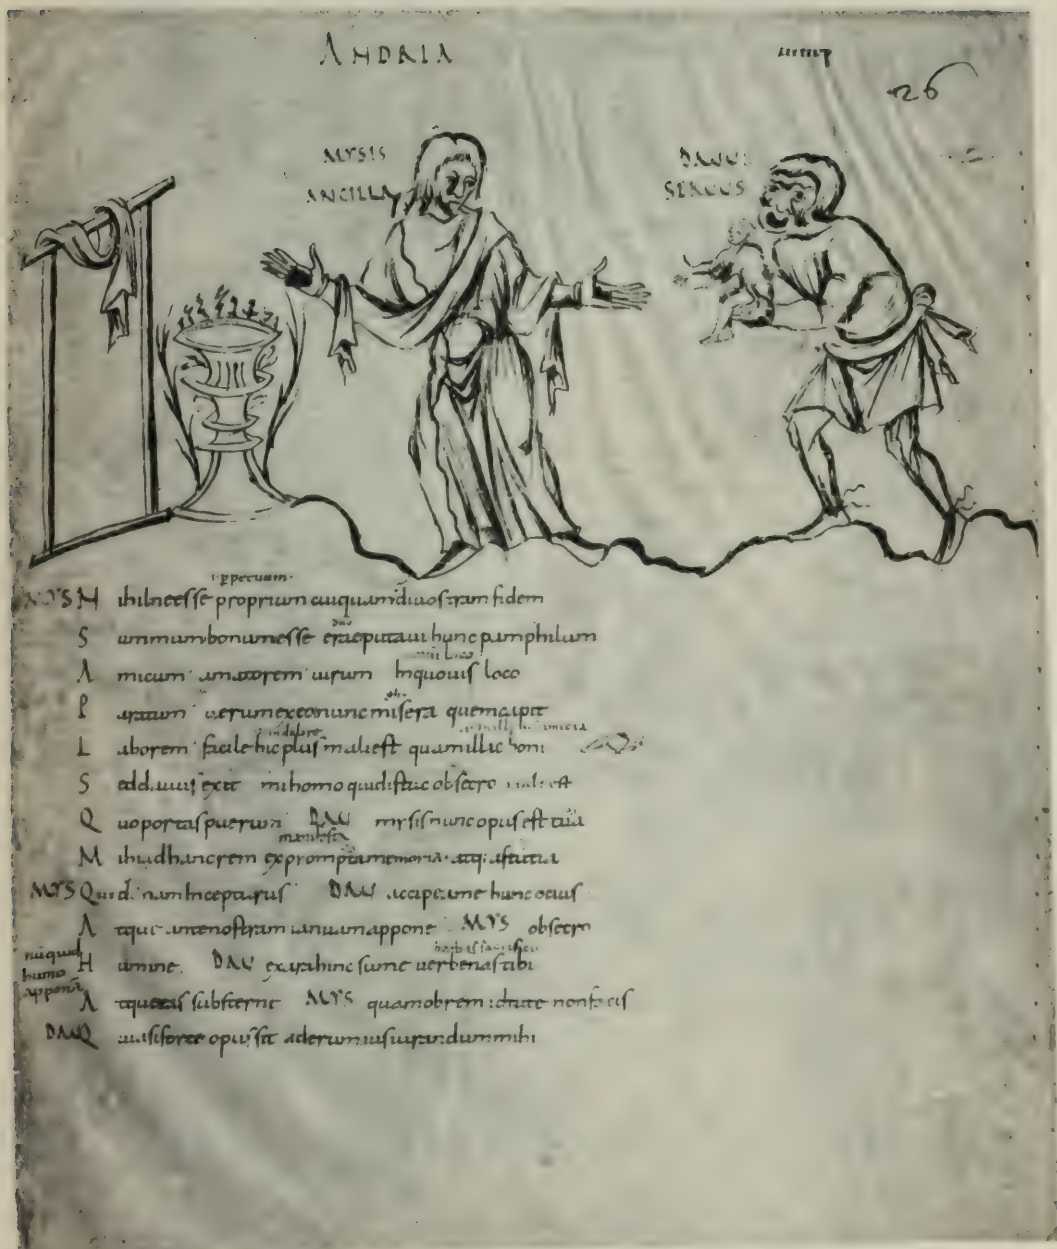 ANDRIA
26
MYSIS
ANCILLA
DAUUS
SERUUS
i ꝑpetuum
MYS Nihilneesse proprium cuiquam diuostram fidem
Summumbonumesse eraeputaui hunc pamphilum
Amicum amatorem uirum Inquouis loco
Paratum uerumexeonunc misera quemcapit
Laborem facile hic plus maliest quamillic boni
Seddauus exit mihomo quidistuc obsecro est
Quoportaspuerum DAU mysis nunc opus est tua
Mihiadhancrem exprompta memoria atq; astutia
MYS Quid nam Incepturus DAU accipeame hunc ocius
Atque antenostram ianuamappone MYS obsecro
nūquid
humo
apponā
Humine DAU exarahinc sume uerbenastibi
Atqueeas substerne MYS quamobrem idtute nonfacis
DAU Quiasiforte opus sit aderumiusiurandummihi